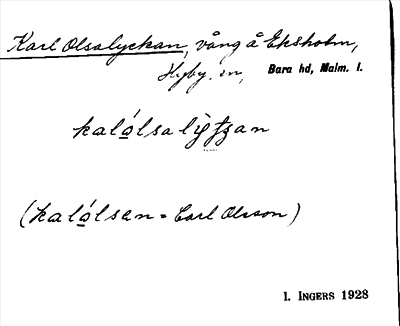 Karl Olsalyckan, vång å Eksholm,
Hyby sn, Bara hd, Malm. l.
kalólsalỳʈʂan
(kalólsen = Carl Olsson)
I. INGERS 1928